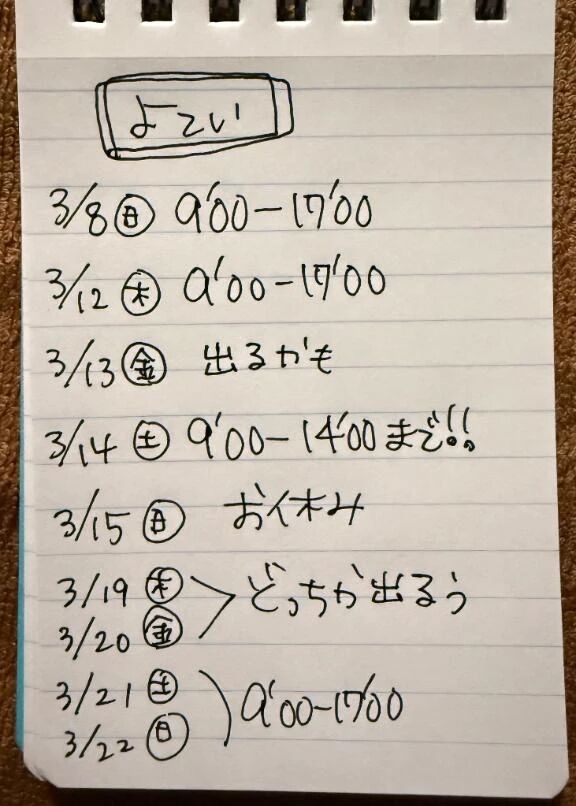 よこい
3/8 ㊐ 9'00-17'00
3/12 ㊍ 9'00-17'00
3/13 ㊎ 出るかも
3/14 ㊏ 9'00-14'00まで!!
3/15 ㊐ お休み
3/19 ㊍
3/20 ㊎
どっちか出るう
3/21 ㊏
3/22 ㊐
9'00-17'00